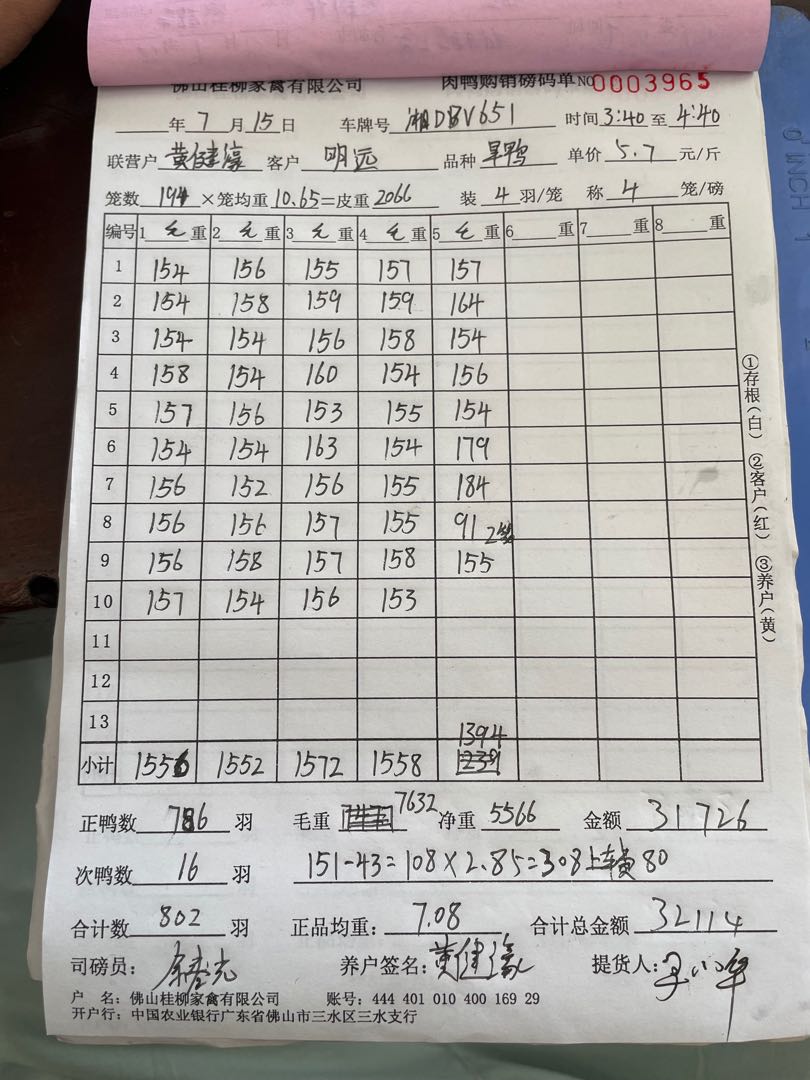 佛山桂柳家禽有限公司 肉鸭购销磅码单 NO 0003965
年 7 月 15 日 车牌号 湘DBV651 时间 3:40 至 4:40
联营户 黄健濠 客户 明远 品种 旱鸭 单价 5.7 元/斤
笼数 194 ×笼均重 10.65 =皮重 2066 装 4 羽/笼 称 4 笼/磅
编号 1 毛 重 2 毛 重 3 毛 重 4 毛 重 5 毛 重 6 重 7 重 8 重
1 154 156 155 157 157
2 154 158 159 159 164
3 154 154 156 158 154
4 158 154 160 154 156
5 157 156 153 155 154
6 154 154 163 154 179
7 156 152 156 155 184
8 156 156 157 155 91 2笼
9 156 158 157 158 155
10 157 154 156 153
11
12
13
1394
小计 1556 1552 1572 1558
正鸭数 786 羽 毛重 7632 净重 5566 金额 31726
次鸭数 16 羽 151-43=108×2.85=308 上车费 80
合计数 802 羽 正品均重: 7.08 合计总金额 32114
司磅员: 养户签名: 黄健濠 提货人:
户 名: 佛山桂柳家禽有限公司 账号: 444 401 010 400 169 29
开户行: 中国农业银行广东省佛山市三水区三水支行
①存根(白) ②客户(红) ③养户(黄)